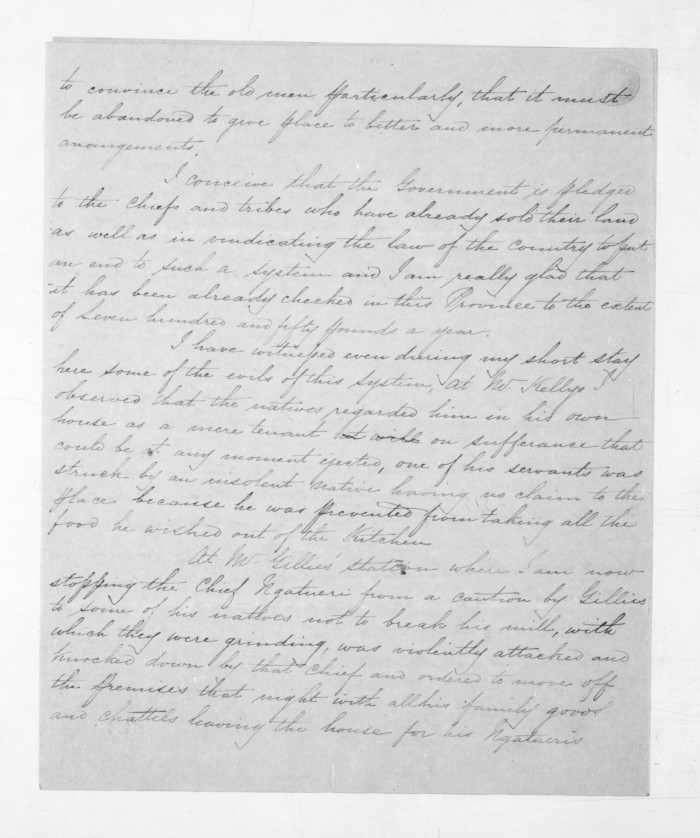 to convince the old men particularly, that it must
be abandoned to give place to better and more permanent
arrangements.
I conceive that the Government is pledged
to the Chiefs and tribes who have already sold their land
as well as in vindicating the law of the country to put
an end to such a system and I am really glad that
it has been already checked in this Province to the extent
of Seven hundred and fifty pounds a year.
I have witnessed even during my short stay
here some of the evils of this system, At Mr Kellys I
observed that the natives regarded him in his own
house as a mere tenant at will on sufferance that
could be at any moment ejected, one of his servants was
struck by an insolent Native having no claim to the
place because he was prevented from taking all the
food he wished out of the Kitchen
At Mr Gillies' station where I am now
stopping the Chief Ngatueri from a caution by Gillies
to some of his natives not to break his mill, with
which they were grinding, was violently attacked and
knocked down by that Chief and ordered to move off
the premises that night with all his family goods
and chattels leaving the house for his Ngatueris